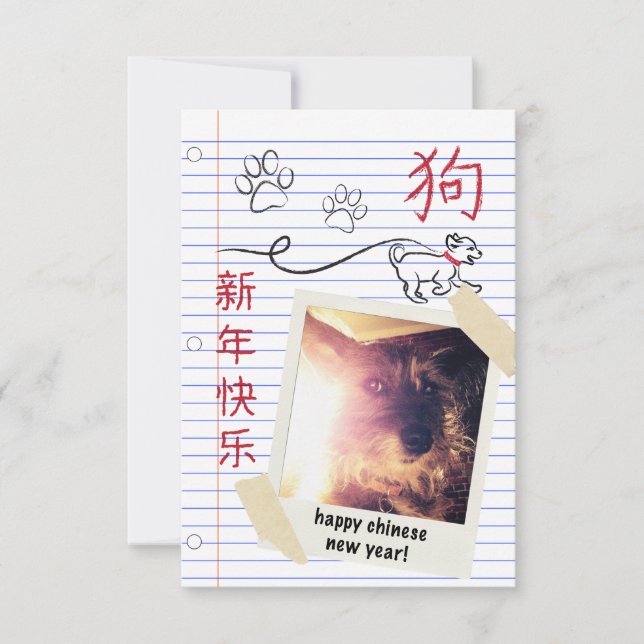 狗
新年快乐
happy chinese
new year!